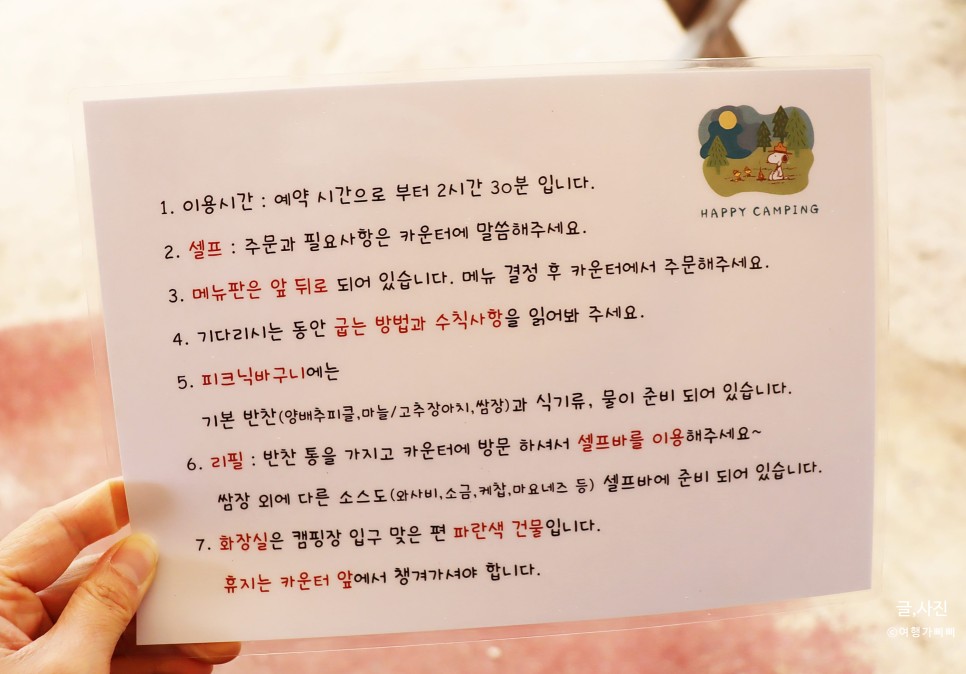 HAPPY CAMPING
1. 이용시간 : 예약 시간으로 부터 2시간 30분 입니다.
2. 셀프 : 주문과 필요사항은 카운터에 말씀해주세요.
3. 메뉴판은 앞 뒤로 되어 있습니다. 메뉴 결정 후 카운터에서 주문해주세요.
4. 기다리시는 동안 굽는 방법과 수칙사항을 읽어봐 주세요.
5. 피크닉바구니에는
기본 반찬(양배추피클,마늘/고추장아치,쌈장)과 식기류, 물이 준비 되어 있습니다.
6. 리필 : 반찬 통을 가지고 카운터에 방문 하셔서 셀프바를 이용해주세요~
쌈장 외에 다른 소스도(와사비,소금,케찹,마요네즈 등) 셀프바에 준비 되어 있습니다.
7. 화장실은 캠핑장 입구 맞은 편 파란색 건물입니다.
휴지는 카운터 앞에서 챙겨가셔야 합니다.
글,사진